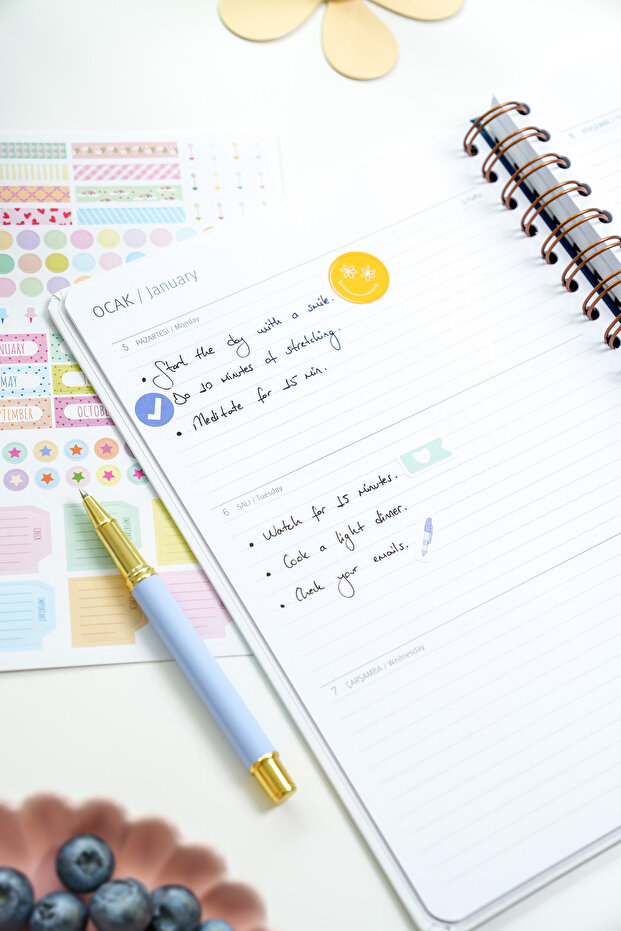 OCAK / January
5 PAZARTESİ / Monday
• Start the day with a smile.
Do 10 minutes of stretching.
• Meditate for 15 min.
6 SALI / Tuesday
• Watch for 15 minutes.
• Cook a light dinner.
• Check your emails.
7 ÇARŞAMBA / Wednesday
2. Hafta
8 PERŞEMBE /
NUARY
MAY
SEPTEMBER
OCTOB